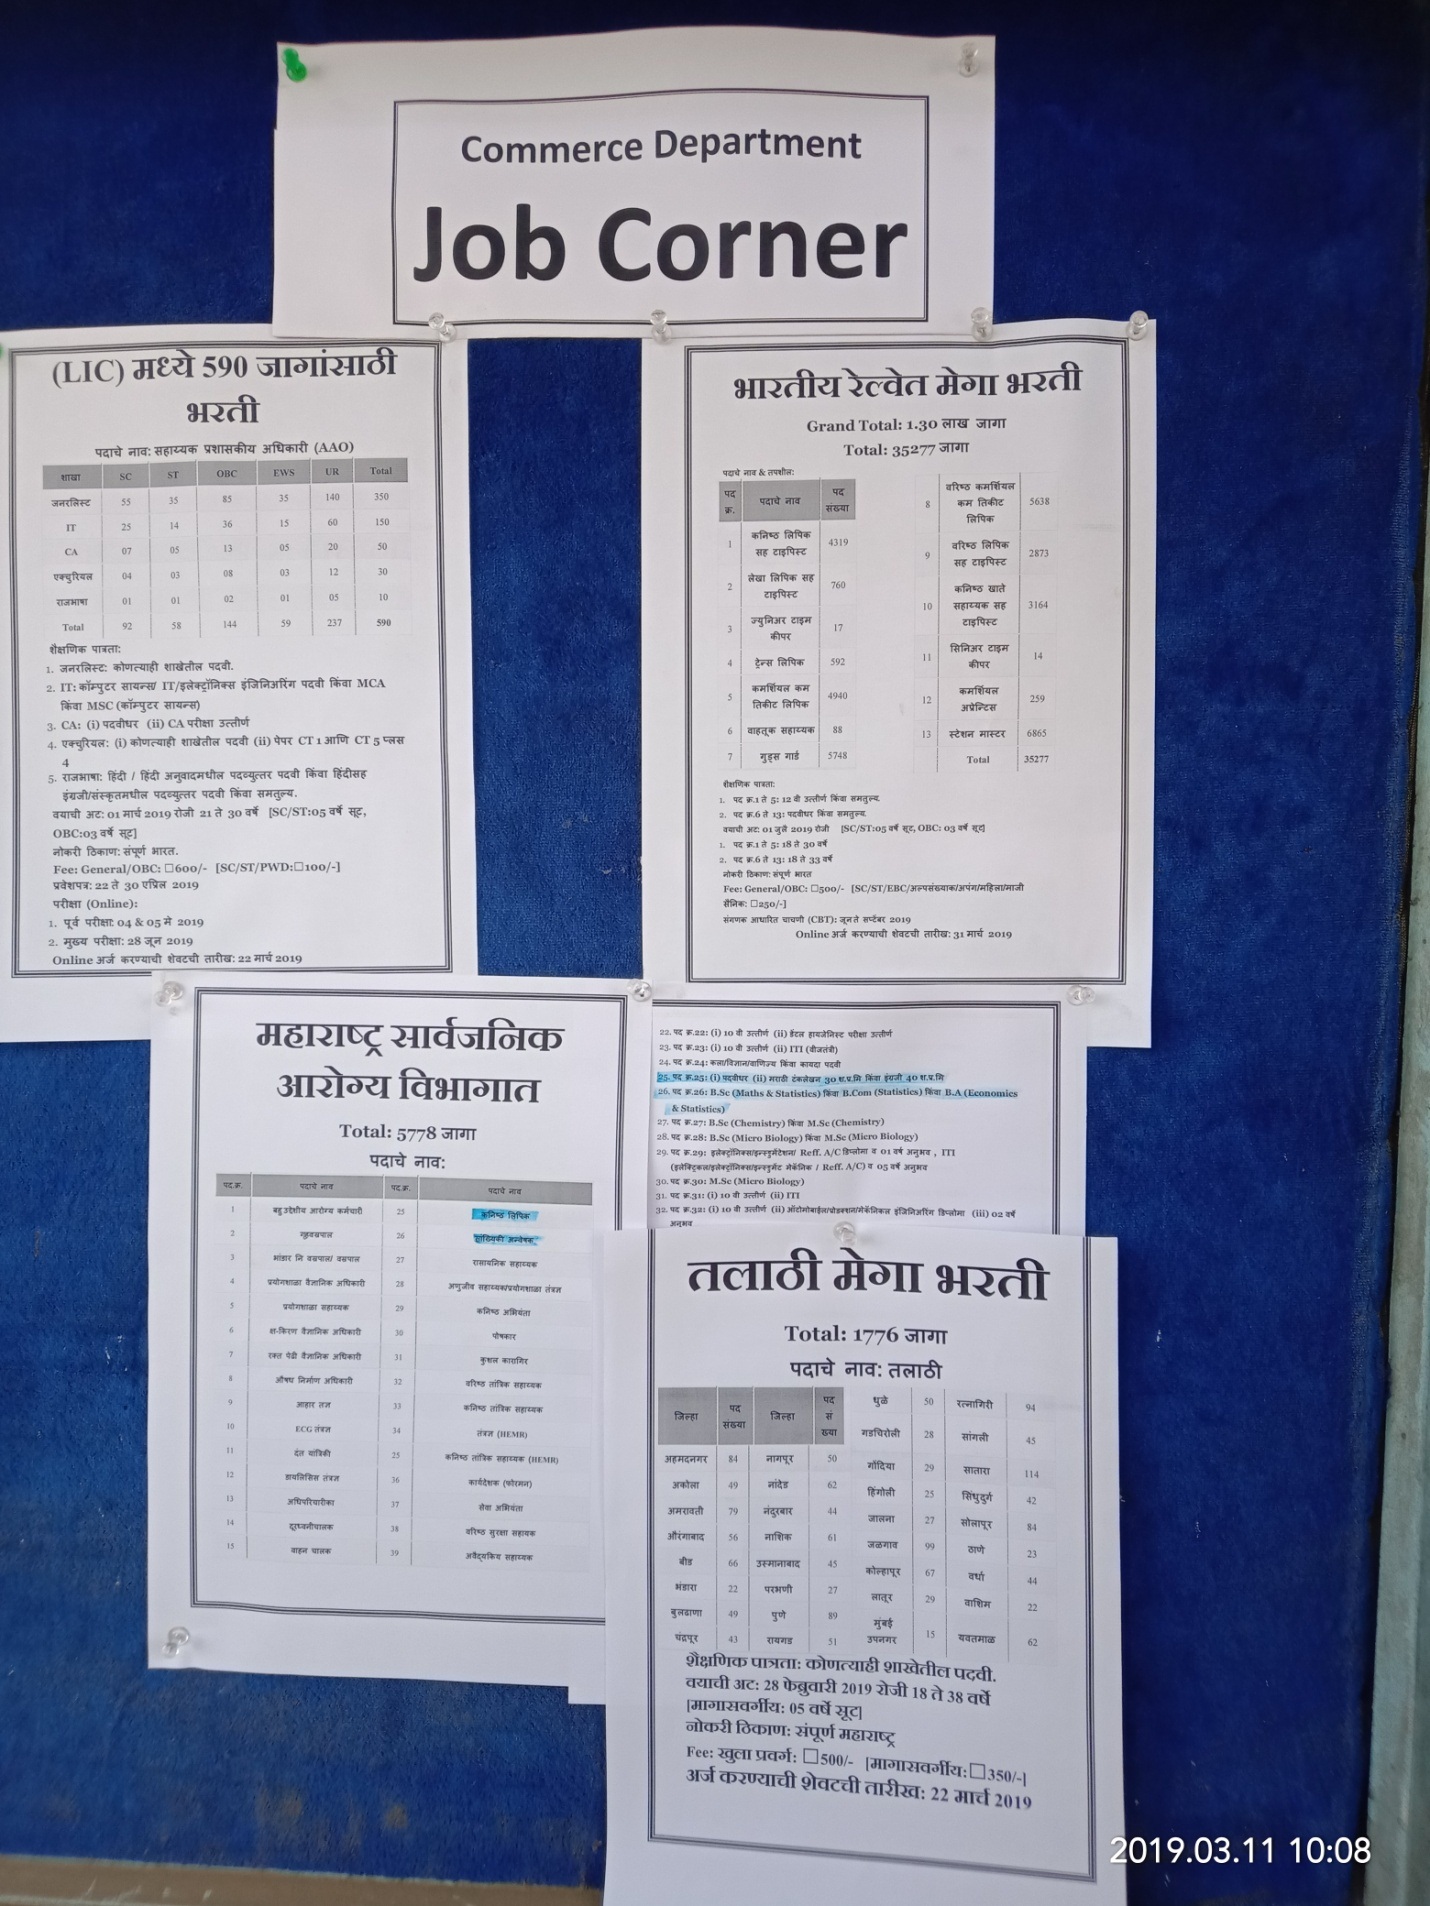 Commerce Department
Job Corner
(LIC) मध्ये 590 जागांसाठी
भरती
पदाचे नाव: सहाय्यक प्रशासकीय अधिकारी (AAO)
शाखा SC ST OBC EWS UR Total
जनरलिस्ट 55 35 85 35 140 350
IT 25 14 36 15 60 150
CA 07 05 13 05 20 50
एक्चुरियल 04 03 08 03 12 30
राजभाषा 01 01 02 01 05 10
Total 92 58 144 59 237 590
शैक्षणिक पात्रता:
1. जनरलिस्ट: कोणत्याही शाखेतील पदवी.
2. IT: कॉम्पुटर सायन्स/ IT/इलेक्ट्रॉनिक्स इंजिनिअरिंग पदवी किंवा MCA
किंवा MSC (कॉम्पुटर सायन्स)
3. CA: (i) पदवीधर (ii) CA परीक्षा उत्तीर्ण
4. एक्चुरियल: (i) कोणत्याही शाखेतील पदवी (ii) पेपर CT 1 आणि CT 5 प्लस
4
5. राजभाषा: हिंदी / हिंदी अनुवादमधील पदव्युत्तर पदवी किंवा हिंदीसह
इंग्रजी/संस्कृतमधील पदव्युत्तर पदवी किंवा समतुल्य.
वयाची अट: 01 मार्च 2019 रोजी 21 ते 30 वर्षे [SC/ST:05 वर्षे सूट,
OBC:03 वर्षे सूट]
नोकरी ठिकाण: संपूर्ण भारत.
Fee: General/OBC: □600/- [SC/ST/PWD:□100/-]
प्रवेशपत्र: 22 ते 30 एप्रिल 2019
परीक्षा (Online):
1. पूर्व परीक्षा: 04 & 05 मे 2019
2. मुख्य परीक्षा: 28 जून 2019
Online अर्ज करण्याची शेवटची तारीख: 22 मार्च 2019
भारतीय रेल्वेत मेगा भरती
Grand Total: 1.30 लाख जागा
Total: 35277 जागा
पदाचे नाव & तपशील:
पद क्र. पदाचे नाव पद संख्या
1 कनिष्ठ लिपिक सह टाइपिस्ट 4319
2 लेखा लिपिक सह टाइपिस्ट 760
3 ज्युनिअर टाइम कीपर 17
4 ट्रेन्स लिपिक 592
5 कमर्शियल कम तिकीट लिपिक 4940
6 वाहतूक सहाय्यक 88
7 गुड्स गार्ड 5748
8 वरिष्ठ कमर्शियल कम तिकीट लिपिक 5638
9 वरिष्ठ लिपिक सह टाइपिस्ट 2873
10 कनिष्ठ खाते सहाय्यक सह टाइपिस्ट 3164
11 सिनिअर टाइम कीपर 14
12 कमर्शियल अप्रेन्टिस 259
13 स्टेशन मास्टर 6865
Total 35277
शैक्षणिक पात्रता:
1. पद क्र.1 ते 5: 12 वी उत्तीर्ण किंवा समतुल्य.
2. पद क्र.6 ते 13: पदवीधर किंवा समतुल्य.
वयाची अट: 01 जुलै 2019 रोजी [SC/ST:05 वर्षे सूट, OBC: 03 वर्षे सूट]
1. पद क्र.1 ते 5: 18 ते 30 वर्षे
2. पद क्र.6 ते 13: 18 ते 33 वर्षे
नोकरी ठिकाण: संपूर्ण भारत
Fee: General/OBC: □500/- [SC/ST/EBC/अल्पसंख्याक/अपंग/महिला/माजी
सैनिक: □250/-]
संगणक आधारित चाचणी (CBT): जून ते सप्टेंबर 2019
Online अर्ज करण्याची शेवटची तारीख: 31 मार्च 2019
महाराष्ट्र सार्वजनिक
आरोग्य विभागात
Total: 5778 जागा
पदाचे नाव:
पद.क्र. पदाचे नाव पद.क्र. पदाचे नाव
1 बहुउद्देशीय आरोग्य कर्मचारी 25 कनिष्ठ लिपिक
2 गृहवस्त्रपाल 26 सांख्यिकी अन्वेषक
3 भांडार नि वस्त्रपाल/ वस्त्रपाल 27 रासायनिक सहाय्यक
4 प्रयोगशाळा वैज्ञानिक अधिकारी 28 अणुजीव सहाय्यक/प्रयोगशाळा तंत्रज्ञ
5 प्रयोगशाळा सहाय्यक 29 कनिष्ठ अभियंता
6 क्ष-किरण वैज्ञानिक अधिकारी 30 पोषकार
7 रक्त पेढी वैज्ञानिक अधिकारी 31 कुशल कारागिर
8 औषध निर्माण अधिकारी 32 वरिष्ठ तांत्रिक सहाय्यक
9 आहार तज्ञ 33 कनिष्ठ तांत्रिक सहाय्यक
10 ECG तंत्रज्ञ 34 तंत्रज्ञ (HEMR)
11 दंत यांत्रिकी 25 कनिष्ठ तांत्रिक सहाय्यक (HEMR)
12 डायलिसिस तंत्रज्ञ 36 कार्यदेशक (फोरमन)
13 अधिपरिचारीका 37 सेवा अभियंता
14 दूरध्वनीचालक 38 वरिष्ठ सुरक्षा सहायक
15 वाहन चालक 39 अवैद्यकिय सहाय्यक
22. पद क्र.22: (i) 10 वी उत्तीर्ण (ii) डेंटल हायजेनिस्ट परीक्षा उत्तीर्ण
23. पद क्र.23: (i) 10 वी उत्तीर्ण (ii) ITI (वीजतंत्री)
24. पद क्र.24: कला/विज्ञान/वाणिज्य किंवा कायदा पदवी
25. पद क्र.25: (i) पदवीधर (ii) मराठी टंकलेखन 30 श.प्र.मि किंवा इंग्रजी 40 श.प्र.मि
26. पद क्र.26: B.Sc (Maths & Statistics) किंवा B.Com (Statistics) किंवा B.A (Economics
& Statistics)
27. पद क्र.27: B.Sc (Chemistry) किंवा M.Sc (Chemistry)
28. पद क्र.28: B.Sc (Micro Biology) किंवा M.Sc (Micro Biology)
29. पद क्र.29: इलेक्ट्रॉनिक्स/इन्स्ट्रुमेंटेशन/ Reff. A/C डिप्लोमा व 01 वर्ष अनुभव , ITI
(इलेक्ट्रिकल/इलेक्ट्रॉनिक्स/इन्स्ट्रुमेंट मेकॅनिक / Reff. A/C) व 05 वर्षे अनुभव
30. पद क्र.30: M.Sc (Micro Biology)
31. पद क्र.31: (i) 10 वी उत्तीर्ण (ii) ITI
32. पद क्र.32: (i) 10 वी उत्तीर्ण (ii) ऑटोमोबाईल/प्रोडक्शन/मेकॅनिकल इंजिनिअरिंग डिप्लोमा (iii) 02 वर्षे
अनुभव
तलाठी मेगा भरती
Total: 1776 जागा
पदाचे नाव: तलाठी
जिल्हा पद संख्या जिल्हा पद संख्या धुळे 50 रत्नागिरी 94
गडचिरोली 28 सांगली 45
अहमदनगर 84 नागपूर 50 गोंदिया 29 सातारा 114
अकोला 49 नांदेड 62 हिंगोली 25 सिंधुदुर्ग 42
अमरावती 79 नंदुरबार 44 जालना 27 सोलापूर 84
औरंगाबाद 56 नाशिक 61 जळगाव 99 ठाणे 23
बीड 66 उस्मानाबाद 45 कोल्हापूर 67 वर्धा 44
भंडारा 22 परभणी 27 लातूर 29 वाशिम 22
बुलढाणा 49 पुणे 89 मुंबई उपनगर 15 यवतमाळ 62
चंद्रपूर 43 रायगड 51
शैक्षणिक पात्रता: कोणत्याही शाखेतील पदवी.
वयाची अट: 28 फेब्रुवारी 2019 रोजी 18 ते 38 वर्षे
[मागासवर्गीय: 05 वर्षे सूट]
नोकरी ठिकाण: संपूर्ण महाराष्ट्र
Fee: खुला प्रवर्ग: □500/- [मागासवर्गीय:□350/-]
अर्ज करण्याची शेवटची तारीख: 22 मार्च 2019
2019.03.11 10:08